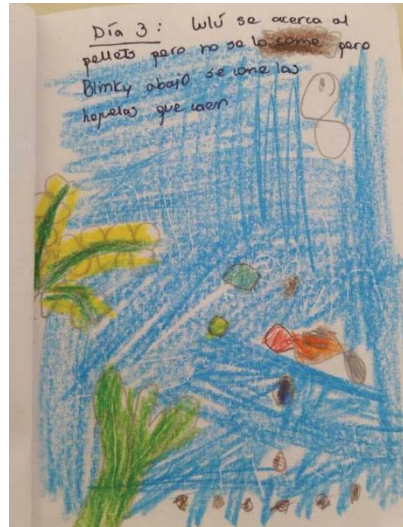 Día 3: Lulú se acerca al
pellets pero no se lo come pero
Blinky abajo se come las
hojuelas que caen